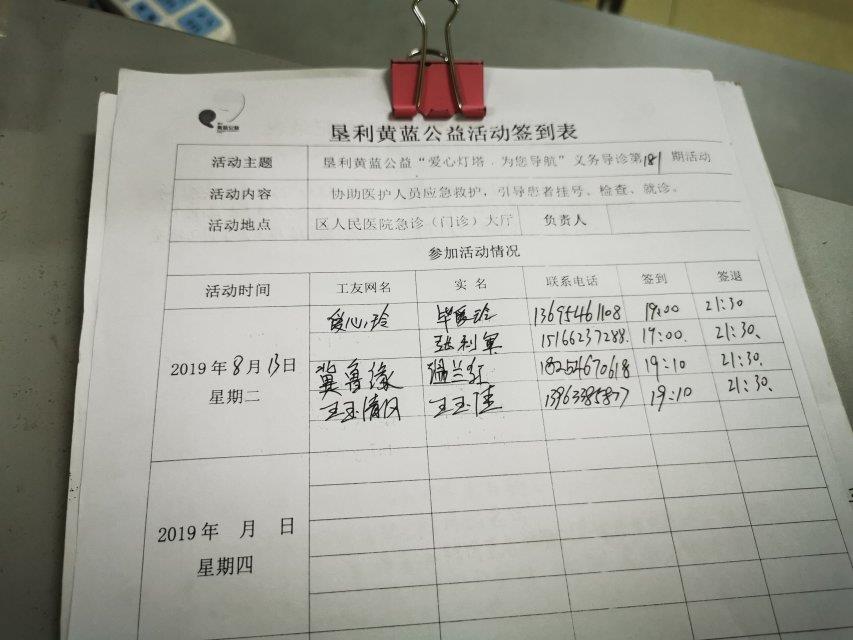 黄蓝公益
垦利黄蓝公益活动签到表
活动主题 垦利黄蓝公益“爱心灯塔．为您导航”义务导诊第181期活动
活动内容 协助医护人员应急救护，引导患者挂号、检查、就诊。
活动地点 区人民医院急诊（门诊）大厅 负责人
参加活动情况
活动时间 工友网名 实 名 联系电话 签到 签退
爱心玲 13695461108 19:00 21:30
张利军 15166237288. 19:00. 21:30.
2019年8月13日 冀鲁缘 温兰红 18254670618 19:10 21:30.
星期二 王玉清风 王玉佳 13963385877 19:10 21:30.
2019年 月 日
星期四